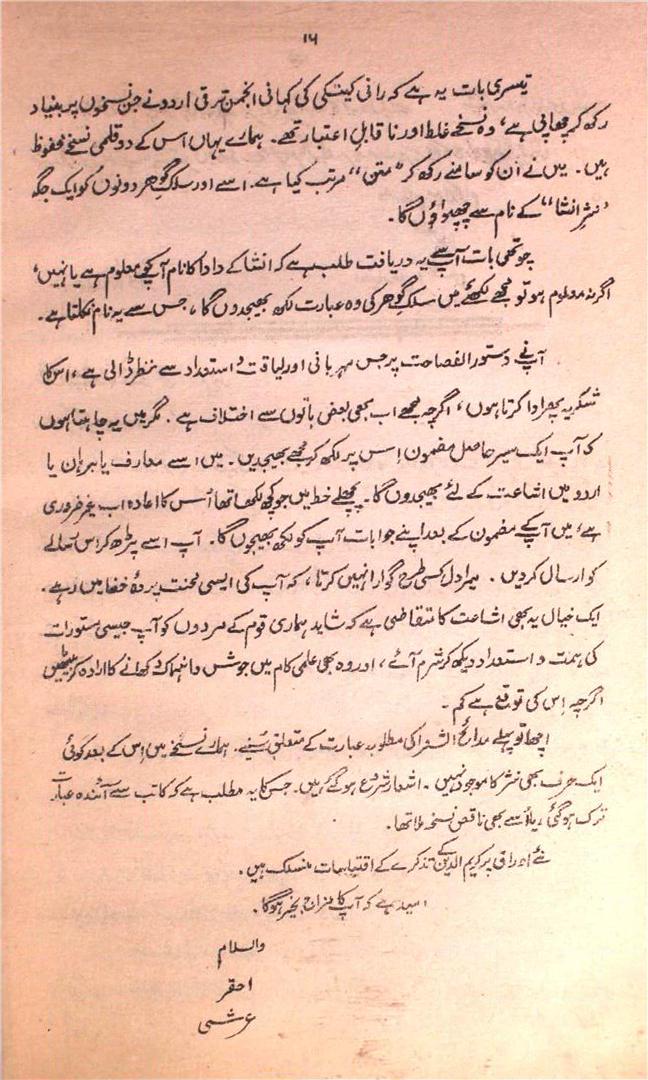 ۱۶
تیسری بات یہ ہے کہ رانی کیتکی کی کہانی انجمن ترقی اردو نے جن نسخوں پر بنیاد
رکھ کر چھاپی ہے، وہ نسخے غلط اور ناقابلِ اعتبار تھے۔ ہمارے یہاں اس کے دو قلمی نسخے محفوظ
ہیں۔ میں نے ان کو سامنے رکھ کر "متن" مرتب کیا ہے۔ اسے اور سلکِ گوہر دونوں کو ایک جگہ
"نثرِ انشا" کے نام سے چھپواؤں گا۔
چوتھی بات آپ سے یہ دریافت طلب ہے کہ انشا کے دادا کا نام آپ کو معلوم ہے یا نہیں،
اگر نہ معلوم ہو تو مجھے لکھئے میں سلکِ گوہر کی وہ عبارت لکھ بھیجدوں گا، جس سے یہ نام نکلتا ہے۔
آپ نے دستور الفصاحت پر جس مہربانی اور لیاقت و استعداد سے نظر ڈالی ہے، اس کا
شکریہ پھر ادا کرتا ہوں، اگرچہ مجھے اب بھی بعض باتوں سے اختلاف ہے۔ مگر میں یہ چاہتا ہوں
کہ آپ ایک سیر حاصل مضمون اِس پر لکھ کر مجھے بھیجدیں۔ میں اسے معارف یا برہان یا
اردو میں اشاعت کے لئے بھیجدوں گا۔ پچھلے خط میں جو کچھ لکھا تھا اُس کا اعادہ اب غیر ضروری
ہے، میں آپ کے مضمون کے بعد اپنے جوابات آپ کو لکھ بھیجوں گا۔ آپ اسے پڑھ کر اس رسالے
کو ارسال کر دیں۔ میرا دل کسی طرح گوارا نہیں کرتا، کہ آپ کی ایسی محنت پردۂ خفا میں رہے۔
ایک خیال یہ بھی اشاعت کا متقاضی ہے کہ شاید ہماری قوم کے مردوں کو آپ جیسی مستورات
کی ہمت و استعداد دیکھ کر شرم آئے، اور وہ بھی علمی کام میں جوش و انہماک دکھانے کا ارادہ کر بیٹھیں
اگرچہ اِس کی توقع ہے کم۔
اچھا تو پہلے مدائح الشعرا کی مطلوبہ عبارت کے متعلق سنیئے۔ ہمارے نسخے میں اِس کے بعد کوئی
ایک حرف بھی نثر کا موجود نہیں۔ اشعار شروع ہو گئے ہیں۔ جس کا یہ مطلب ہے کہ کاتب سے آئندہ عبارت
ترک ہو گئی، یا اُسے بھی ناقص نسخہ ملا تھا۔
نئے اوراق پر کریم الدین کے تذکرے کے اقتباسات منسلک ہیں۔
امید ہے کہ آپ کا مزاج بخیر ہوگا۔
والسلام
احقر
عرشی